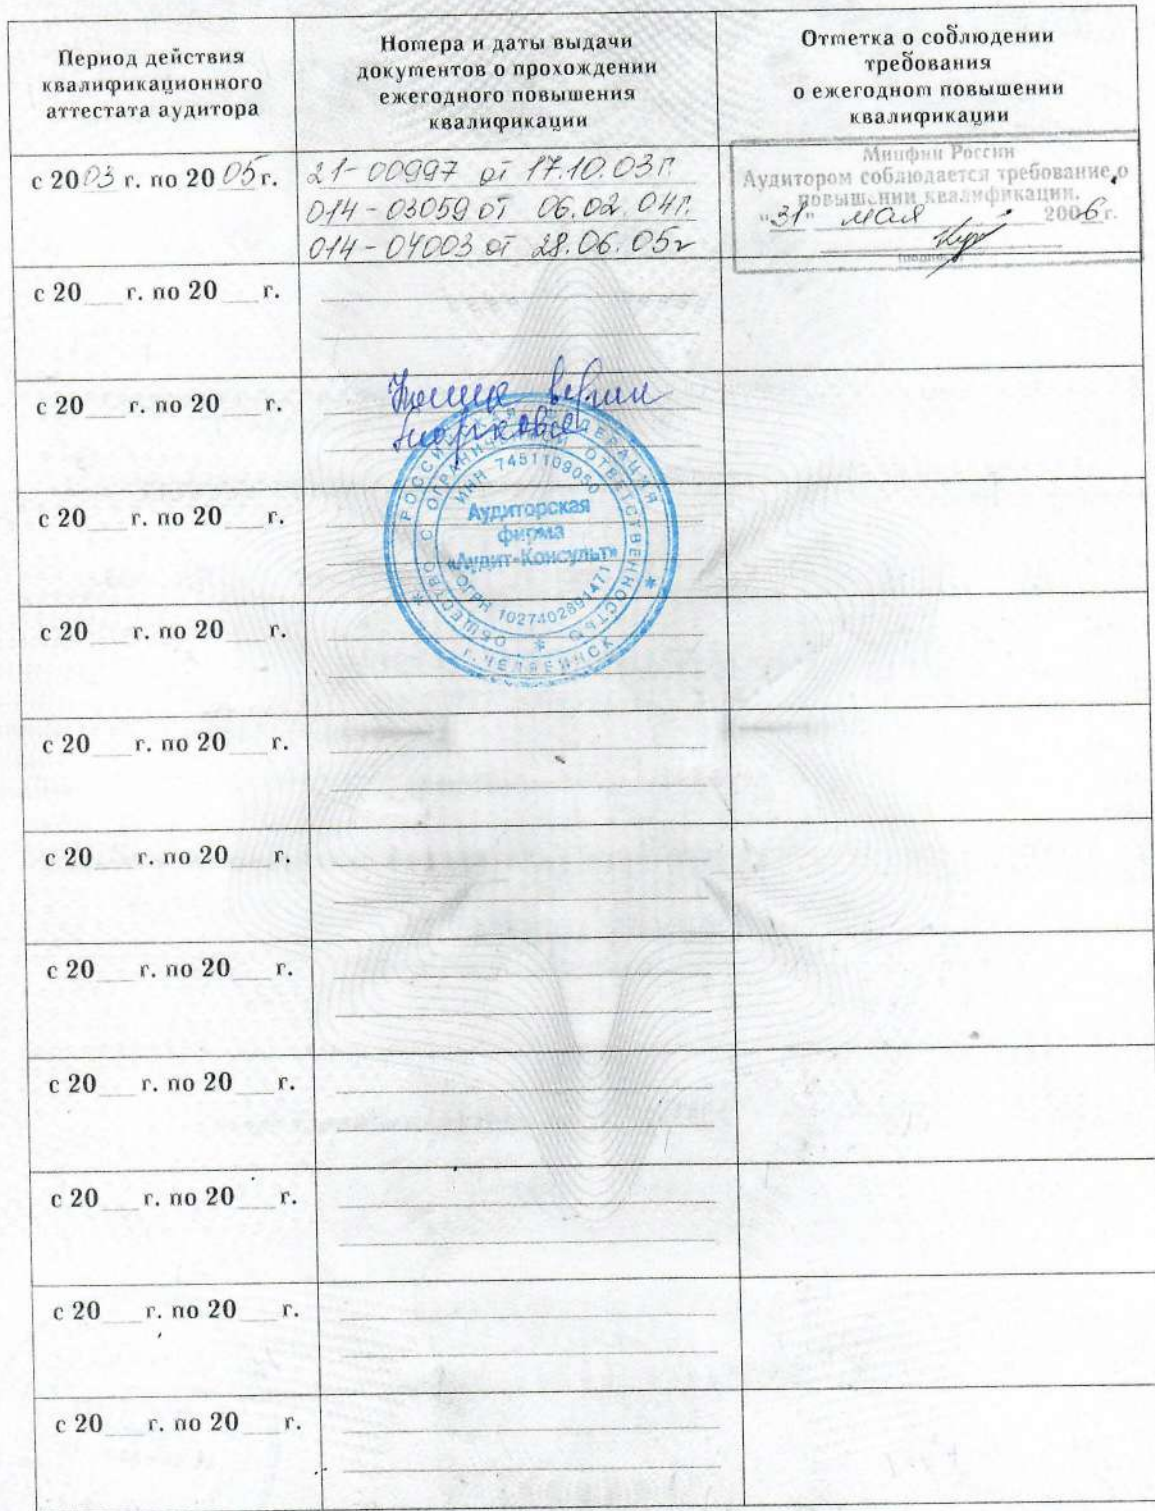 Период действия
квалификационного
аттестата аудитора
Номера и даты выдачи
документов о прохождении
ежегодного повышения
квалификации
Отметка о соблюдении
требования
о ежегодном повышении
квалификации
с 2003 г. по 2005 г.
21-00997 от 17.10.03г.
014-03059 от 06.02.04г.
014-04003 от 28.06.05г
Минфин России
Аудитором соблюдается требование о
повышении квалификации.
"31" мая 2006 г.
с 20___ г. по 20___ г.
с 20___ г. по 20___ г.
Копия верна
РОССИЙСКАЯ ФЕДЕРАЦИЯ
г. ЧЕЛЯБИНСК
ОБЩЕСТВО С ОГРАНИЧЕННОЙ ОТВЕТСТВЕННОСТЬЮ
ИНН 7451109050
Аудиторская
фирма
«Аудит-Консульт»
ОГРН 1027402891471
с 20___ г. по 20___ г.
с 20___ г. по 20___ г.
с 20___ г. по 20___ г.
с 20___ г. по 20___ г.
с 20___ г. по 20___ г.
с 20___ г. по 20___ г.
с 20___ г. по 20___ г.
с 20___ г. по 20___ г.
с 20___ г. по 20___ г.